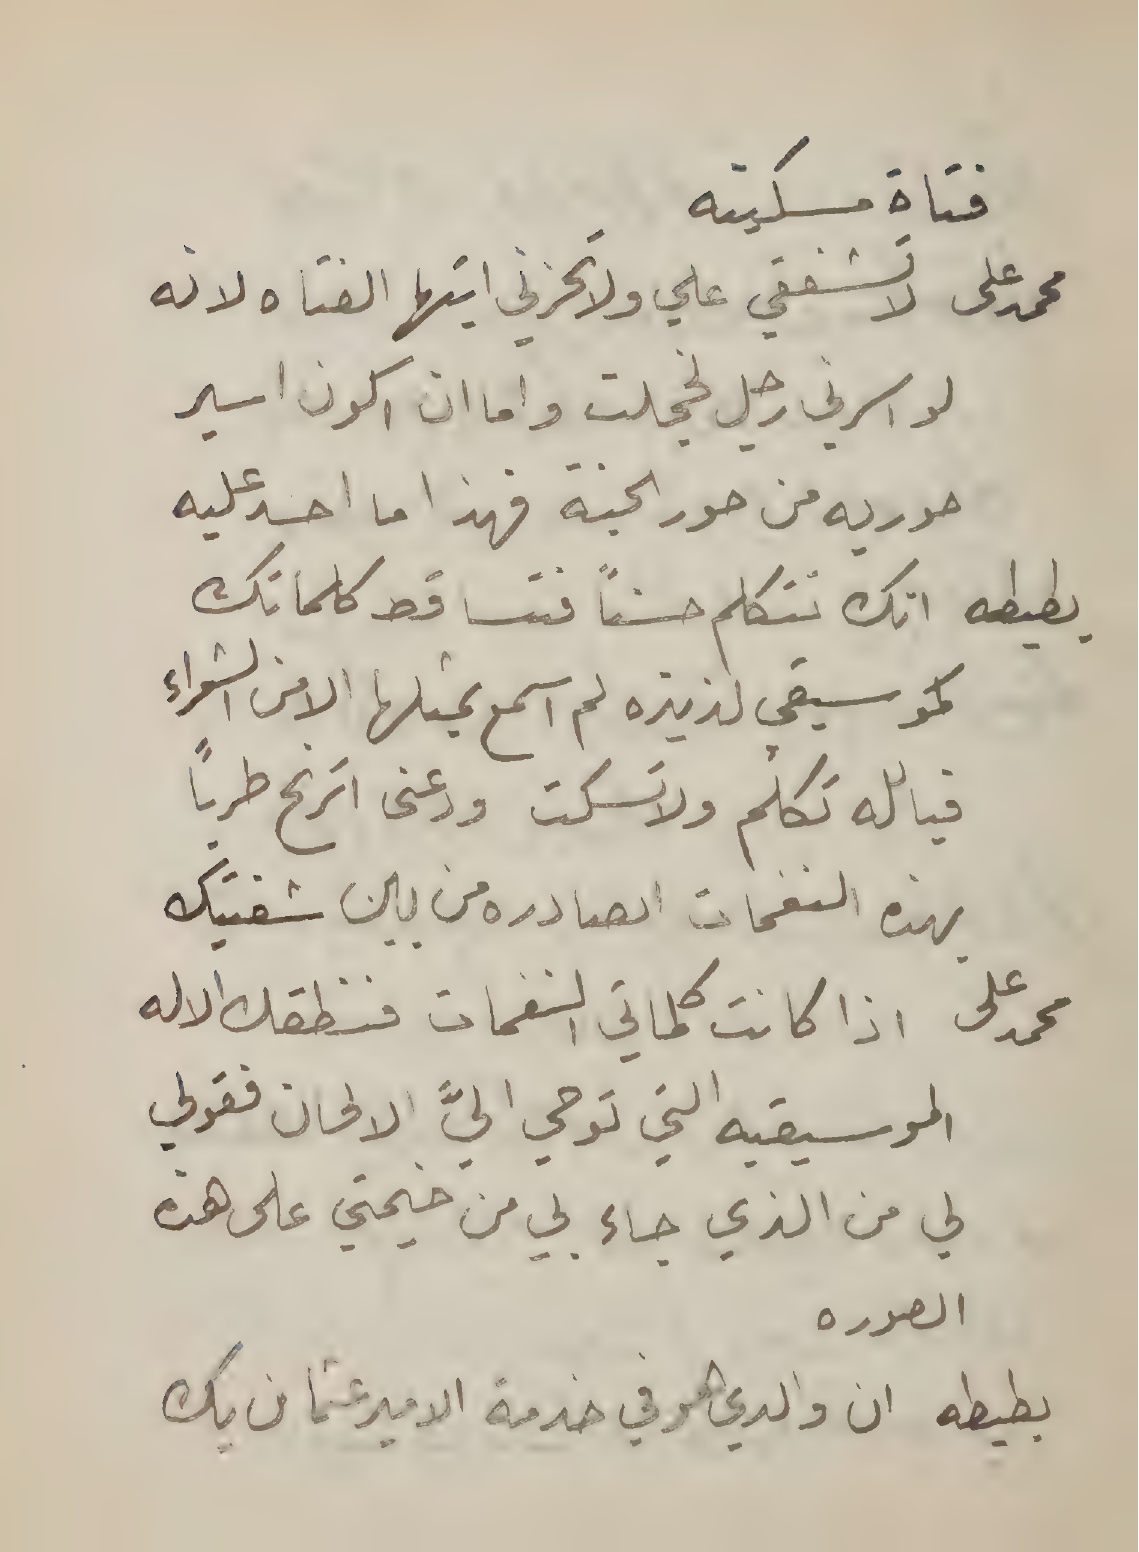 فتاة مسكينه
محمد على لا تشفقي علي ولا تحزني ايتها الفتاه لانه
لو اسرني رجل لخجلت واما ان اكون اسير
حوريه من حور الجنة فهذا ما احسد عليه
بطيطه انك تتكلم حسناً فتساقط كلماتك
كموسيقي لذيذه لم اسمع بمثلها الا من الشعراء
فبالله تكلم ولا تسكت ودعنى اترنح طرباً
بهذه النغمات الصادره من بين شفتيك
محمد على اذا كانت كلماتي النغمات فنطقك الاله
الموسيقيه التي توحي اليَّ الالحان فقولي
لي من الذي جاء بي من خيمتي على هذه
الصوره
بطيطه ان والدي هو في خدمة الامير عثمان بك